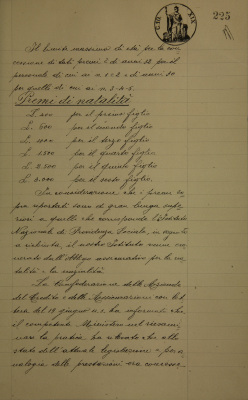 225
Il limite massimo di età per la con-
cessione di detti premi è di anni 32 per il
personale di cui ai n. 1 e 2 e di anni 30
per quello di cui ai n. 3-4-5.
Premi di natalità
per il primo figlio
per il secondo figlio
L. 1000 per il terzo figlio
L. 1.500 per il quarto figlio
L. 2.500 per il quinto figlio
L. 3.000 per il sesto figlio
In considerazione che i premi so-
pra riportati sono di gran lunga supe-
riori a quelli che corrisponde l'Istituto
Nazionale di Previdenza Sociale, in quanto
a richiesta, il nostro Istituto venne eso-
nerato dall'obbligo assicurativo per la na-
talità e la nuzialità.
La Confederazione delle Aziende
del Credito e della Assicurazione con let-
tera del 19 giugno u.s. ha informato che
il competente Ministero nel riesami-
nare la pratica ha rilevato che allo
stato dell'attuale legislazione
delle prestazioni